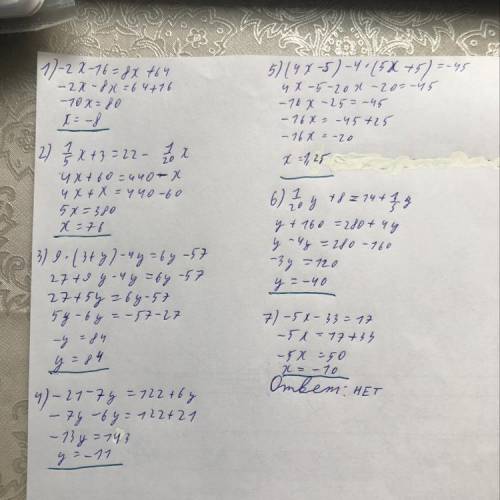 1) -2x-16=8x+64
-2x-8x=64+16
-10x=80
x=-8
2) 1/5 x+3=22- 1/20 x
4x+60=440-x
4x+x=440-60
5x=380
x=76
3) 9·(3+y)-4y=6y-57
27+9y-4y=6y-57
27+5y=6y-57
5y-6y=-57-27
-y=84
y=84
4) -21-7y=122+6y
-7y-6y=122+21
-13y=143
y=-11
5) (4x-5)-4·(5x+5)=-45
4x-5-20x-20=-45
-16x-25=-45
-16x=-45+25
-16x=-20
x=1,25
6) 1/20 y+8=14+1/5 y
y+160=280+4y
y-4y=280-160
-3y=120
y=-40
7) -5x-33=17
-5x=17+33
-5x=50
x=-10
Ответ: нет